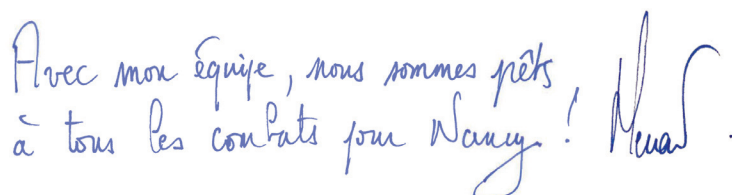 Avec mon équipe, nous sommes prêts
à tous les combats pour Nancy !